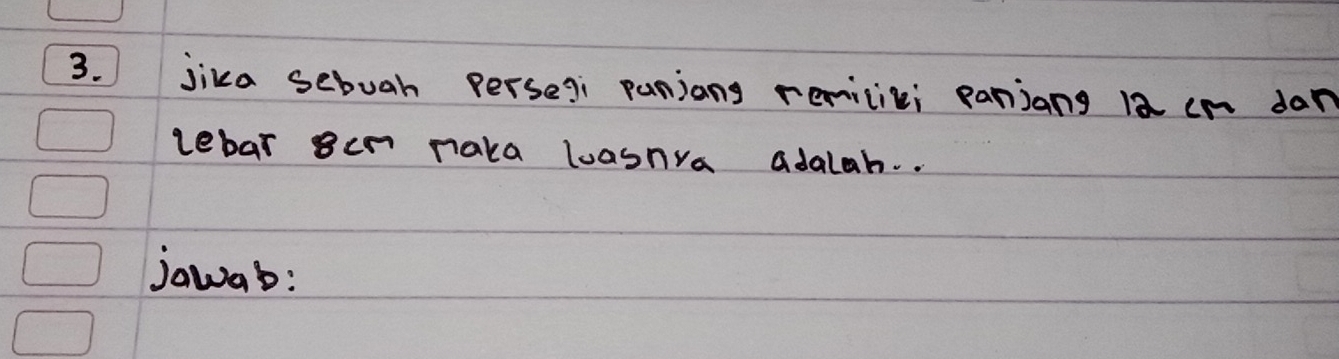 3. jika sebuah persegi panjang memiliki panjang 12 cm dan
lebar 8cm maka luasnya adalah..
jawab: